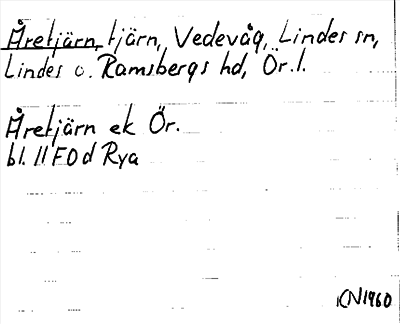 Åretjärn, tjärn, Vedevåg, Lindes sn,
Lindes o. Ramsbergs hd, Ör. l.
Åretjärn ek Ör.
bl. 11 F0d Rya
KN1960